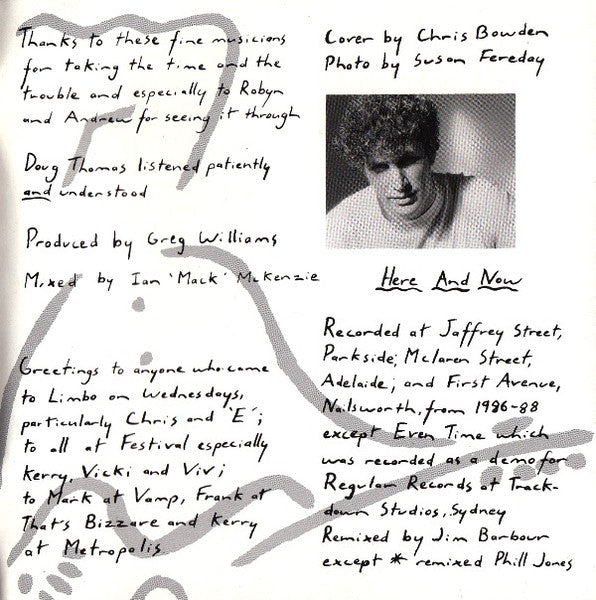 Thanks to these fine musicians
for taking the time and the
trouble and especially to Robyn
and Andrew for seeing it through
Doug Thomas listened patiently
and understood
Produced by Greg Williams
Mixed by Ian 'Mack' McKenzie
Greetings to anyone who came
to Limbo on Wednesdays,
particularly Chris and 'E';
to all at Festival especially
Kerry, Vicki and Viv;
to Mark at Vamp, Frank at
That's Bizzare and Kerry
at Metropolis
Cover by Chris Bowden
Photo by Susan Fereday
Here And Now
Recorded at Jaffrey Street,
Parkside; Mclaren Street,
Adelaide; and First Avenue,
Nailsworth, from 1986-88
except Even Time which
was recorded as a demo for
Regular Records at Track-
down Studios, Sydney
Remixed by Jim Barbour
except * remixed Phill Jones